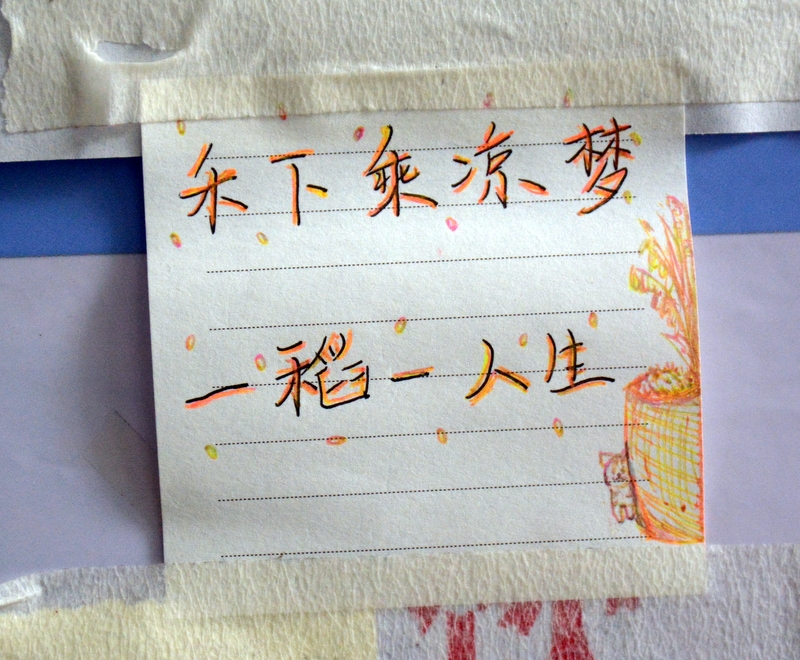 禾下乘凉梦
一稻一人生